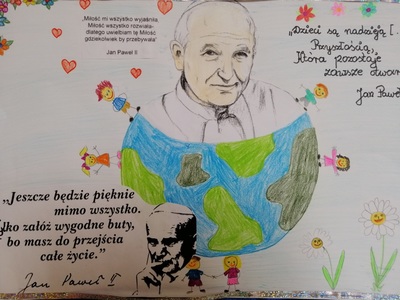 „Miłość mi wszystko wyjaśniła,
Miłość wszystko rozwiała-
dlatego uwielbiam tę Miłość
gdziekolwiek by przebywała"
Jan Paweł II
„Dzieci są nadzieją [.
Przyszłością,
Która pozostaje
zawsze otwar
Jan Pawe
„Jeszcze będzie pięknie
mimo wszystko.
lko załóż wygodne buty,
bo masz do przejścia
całe życie."
Jan Paweł II